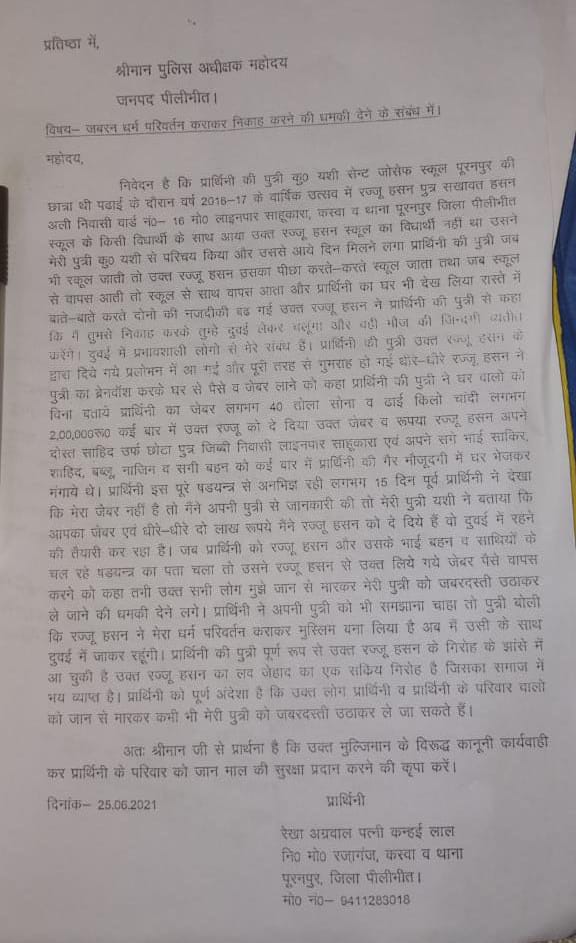 प्रतिष्ठा में,
श्रीमान पुलिस अधीक्षक महोदय
जनपद पीलीभीत।
विषय– जबरन धर्म परिवर्तन कराकर निकाह करने की धमकी देने के संबंध में।
महोदय,
निवेदन है कि प्रार्थिनी की पुत्री कु0 यशी सेन्ट जोसेफ स्कूल पूरनपुर की
छात्रा थी पढाई के दौरान वर्ष 2016–17 के वार्षिक उत्सव में रज्जू हसन पुत्र सखावत हसन
अली निवासी वार्ड नं0– 16 मो0 लाइनपार साहूकारा, कस्वा व थाना पूरनपुर जिला पीलीभीत
स्कूल के किसी विधार्थी के साथ आया उक्त रज्जू हसन स्कूल का विधार्थी नहीं था उसने
मेरी पुत्री कु0 यशी से परिचय किया और उससे आये दिन मिलने लगा प्रार्थिनी की पुत्री जब
भी स्कूल जाती तो उक्त रज्जू हसन उसका पीछा करते–करते स्कूल जाता तथा जब स्कूल
से वापस आती तो स्कूल से साथ वापस आता और प्रार्थिनी का घर भी देख लिया रास्ते में
बाते–बाते करते दोनो की नजदीकी बढ गई उक्त रज्जू हसन ने प्रार्थिनी की पुत्री से कहा
कि मैं तुमसे निकाह करके तुम्हे दुवई लेकर चलूंगा और वही मौज की जिन्दगी व्यतीत
करेंगे। दुवई में प्रभावशाली लोगो से मेरे संबंध है। प्रार्थिनी की पुत्री उक्त रज्जू हसन के
द्वारा दिये गये प्रलोभन में आ गई और पूरी तरह से गुमराह हो गई धीरे–धीरे रज्जू हसन ने
पुत्री का ब्रेनवॉश करके घर से पैसे व जेबर लाने को कहा प्रार्थिनी की पुत्री ने घर वालो को
विना बताये प्रार्थिनी का जेबर लगभग 40 तोला सोना व ढाई किलो चांदी लगभग
2,00,000रू0 कई बार में उक्त रज्जू को दे दिया उक्त जेबर व रूपया रज्जू हसन अपने
दोस्त साहिद उर्फ छोटा पुत्र जिब्बी निवासी लाइनपार साहूकारा एवं अपने सगे भाई साकिर,
शाहिद, बब्लू, नाजिन व सगी बहन को कई बार में प्रार्थिनी की गैर मौजूदगी में घर भेजकर
मंगाये थे। प्रार्थिनी इस पूरे षडयन्त्र से अनभिज्ञ रही लगभग 15 दिन पूर्व प्रार्थिनी ने देखा
कि मेरा जेबर नहीं है तो मैंने अपनी पुत्री से जानकारी की तो मेरी पुत्री यशी ने बताया कि
आपका जेबर एवं धीरे–धीरे दो लाख रूपये मैंने रज्जू हसन को दे दिये हैं वो दुवई में रहने
की तैयारी कर रहा है। जब प्रार्थिनी को रज्जू हसन और उसके भाई बहन व साथियों के
चल रहे षडयन्त्र का पता चला तो उसने रज्जू हसन से उक्त लिये गये जेबर पैसे वापस
करने को कहा तभी उक्त सभी लोग मुझे जान से मारकर मेरी पुत्री को जबरदस्ती उठाकर
ले जाने की धमकी देने लगे। प्रार्थिनी ने अपनी पुत्री को भी समझाना चाहा तो पुत्री बोली
कि रज्जू हसन ने मेरा धर्म परिवर्तन कराकर मुस्लिम बना लिया है अब मैं उसी के साथ
दुवई में जाकर रहूंगी। प्रार्थिनी की पुत्री पूर्ण रूप से उक्त रज्जू हसन के गिरोह के झांसे में
आ चुकी है उक्त रज्जू हसन का लव जेहाद का एक सक्रिय गिरोह है जिसका समाज में
भय व्याप्त है। प्रार्थिनी को पूर्ण अंदेशा है कि उक्त लोग प्रार्थिनी व प्रार्थिनी के परिवार वालो
को जान से मारकर कभी भी मेरी पुत्री को जबरदस्ती उठाकर ले जा सकते हैं।
अतः श्रीमान जी से प्रार्थना है कि उक्त मुल्जिमान के विरूद्ध कानूनी कार्यवाही
कर प्रार्थिनी के परिवार को जान माल की सुरक्षा प्रदान करने की कृपा करें।
दिनांक– 25.06.2021 प्रार्थिनी
रेखा अग्रवाल पत्नी कन्हई लाल
नि0 मो0 रजागंज, कस्वा व थाना
पूरनपुर, जिला पीलीभीत।
मो0 नं0– 9411283018